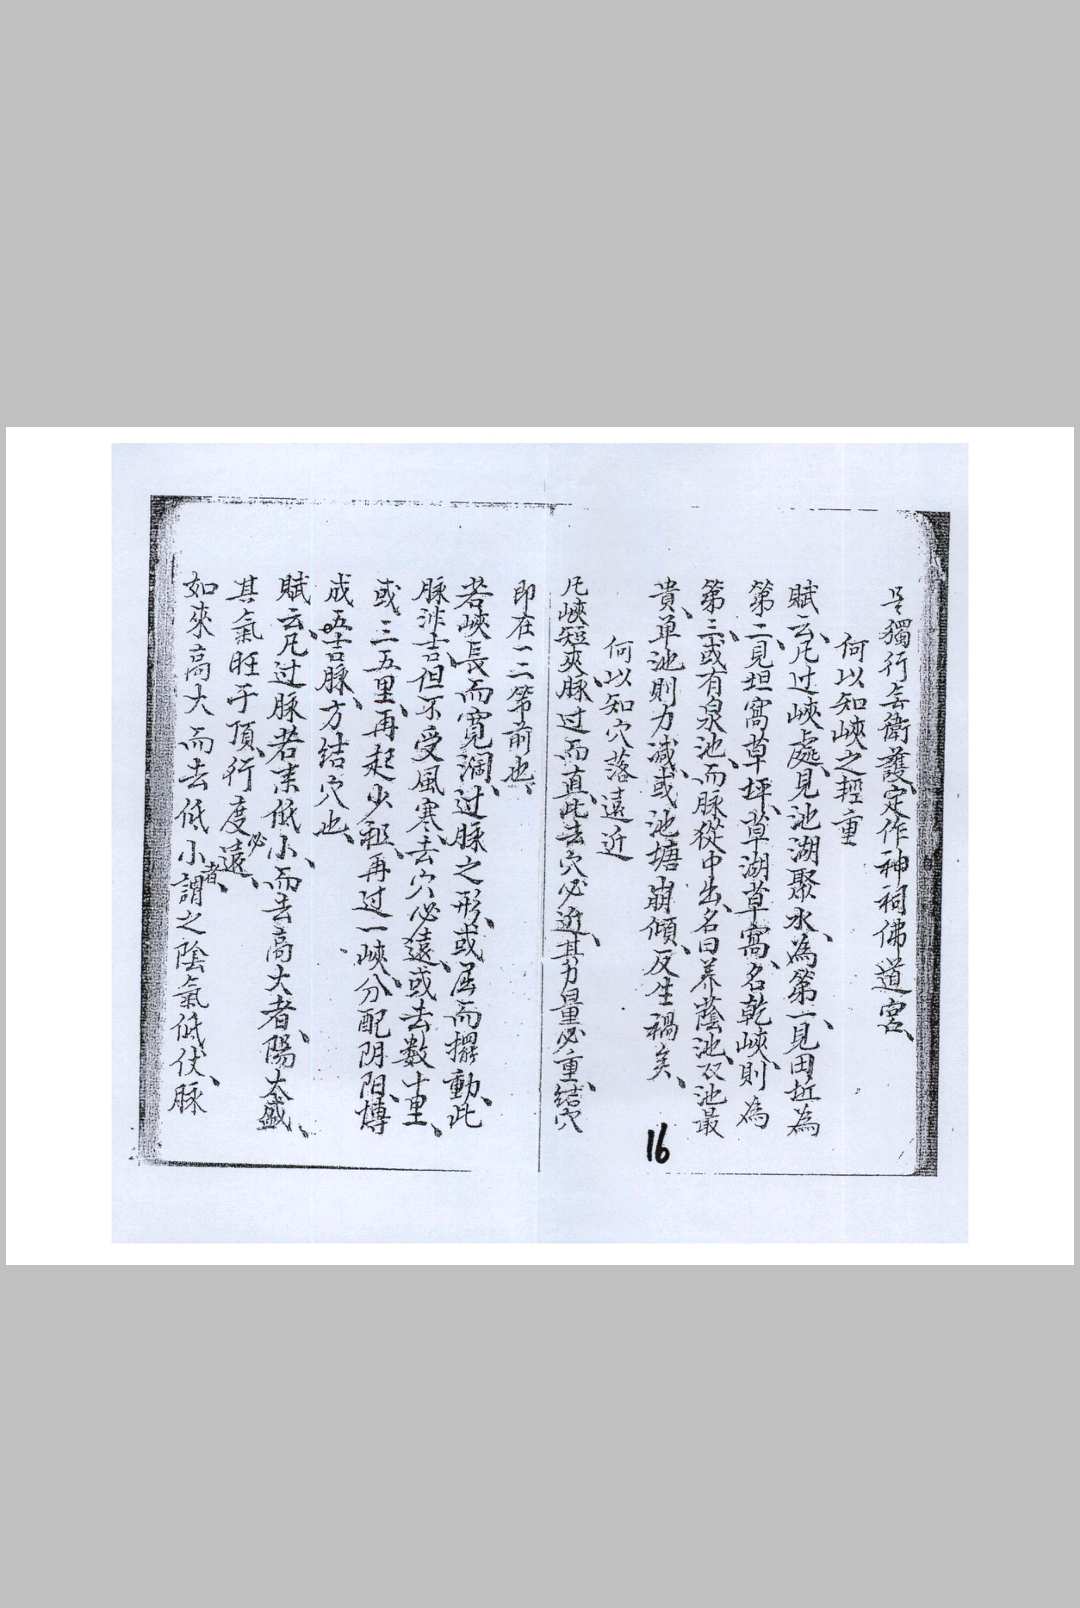 是獨行無衛護、定作神祠佛道宮、
何以知峽之輕重
賦云、凡过峽處、見池湖聚水、為第一、見田坵為
第二、見坦窩草坪、草湖草窩、名乾峽、則為
第三、或有泉池、而脉從中出、名曰养蔭池、双池最
貴、单池則力减、或池塘崩傾、反生禍矣、
何以知穴落遠近
凡峽短夾脉、过而直、此去穴必近、其力量必重、結穴
即在一二節前也、
若峽長而寬濶、过脉之形、或屈而擺動、此
脉非吉、但不受風寒、去穴必遠、或去数十里、
或三五里、再起少祖、再过一峽、分配阴阳、博
成五吉脉、方結穴也、
賦云、凡过脉若来低小、而去高大者、陽太盛、
其氣旺于頂、行度必遠、
如來高大而去低小者、謂之陰氣低伏、脉
16